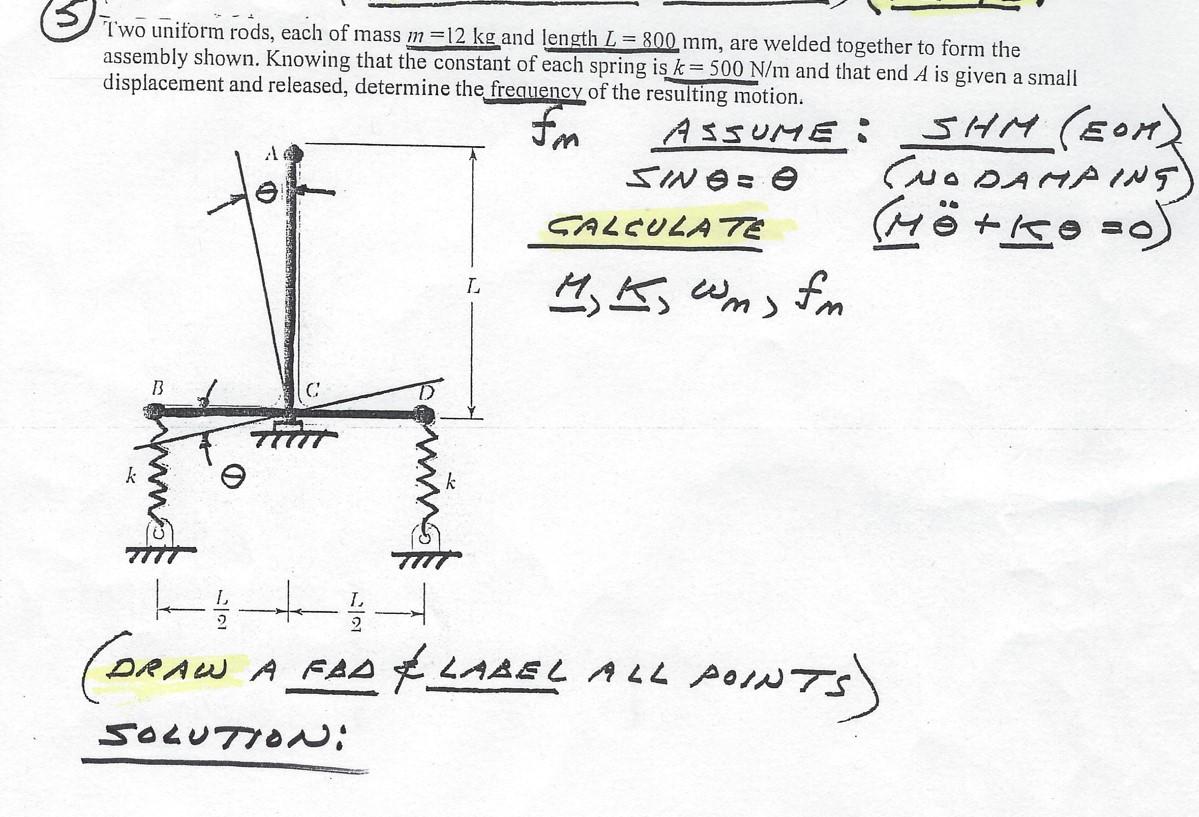 5
Two uniform rods, each of mass m = 12 kg and length L = 800 mm, are welded together to form the
assembly shown. Knowing that the constant of each spring is k = 500 N/m and that end A is given a small
displacement and released, determine the frequency of the resulting motion.
fn ASSUME: SHM (EOM)
SIN θ = θ (NO DAMPING)
CALCULATE (M θ̈ + K θ = 0)
M, K, ωn, fn
A
θ
L
B
C
D
k
θ
k
L/2
L/2
(DRAW A FBD & LABEL ALL POINTS)
SOLUTION: